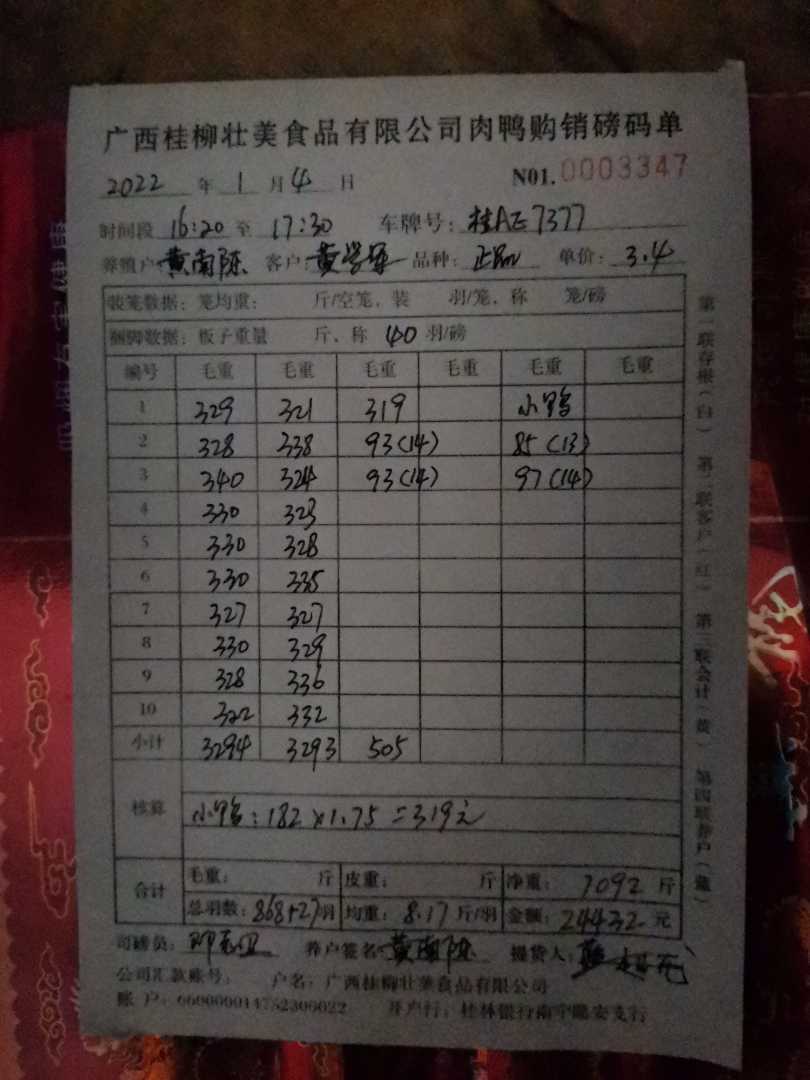 广西桂柳壮美食品有限公司肉鸭购销磅码单
2022 年 1 月 4 日 N01.0003347
时间段 16:20 至 17:30 车牌号: 桂AE7377
养殖户: 黄南陈 客户: 品种: 正品 单价: 3.4
装笼数据: 笼均重: 斤/空笼、装 羽/笼、称 笼/磅
捆脚数据: 板子重量 斤、称 40 羽/磅
编号 毛重 毛重 毛重 毛重 毛重 毛重
1 329 321 319 小鸭
2 328 338 93(14) 85(13)
3 340 324 93(14) 97(14)
4 330 323
5 330 328
6 330 335
7 327 327
8 330 329
9 328 336
10 322 332
小计 3294 3293 505
核算 小鸭: 182×1.75=319元
合计 毛重: 斤 皮重: 斤 净重: 7092 斤
总羽数: 868+27羽 均重: 8.17 斤/羽 金额: 24432 元
司磅员: 养户签名: 黄南陈 提货人:
公司汇款账号: 户名: 广西桂柳壮美食品有限公司
账 户: 660000014752300022 开户行: 桂林银行南宁隆安支行
第一联存根(白) 第二联客户(红) 第三联会计(黄) 第四联养户(蓝)